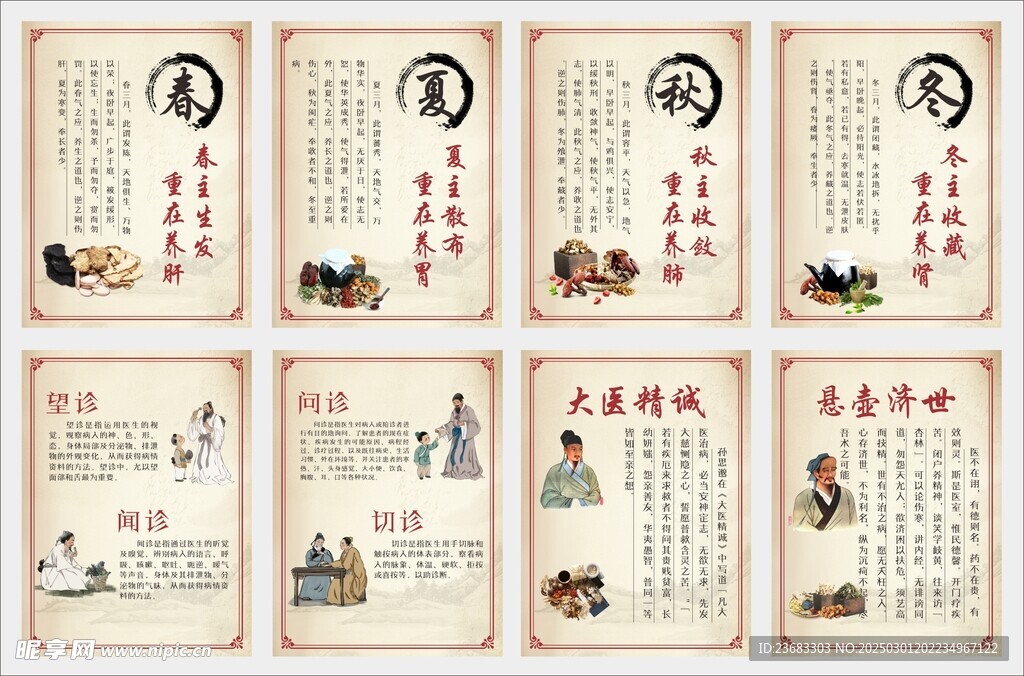 春
春主生发
重在养肝
春三月，此谓发陈，天地俱生，万物
以荣；夜卧早起，广步于庭，被发缓形，
以使忘生；生而勿杀，予而勿夺，赏而勿
罚，此春气之应，养生之道也。逆之则伤
肝，夏为寒变，奉长者少。
夏
夏主散布
重在养胃
夏三月，此谓蕃秀，天地气交，万
物华实，夜卧早起，无厌于日，使志无
怒，使华英成秀，使气得泄，若所爱在
外，此夏气之应，养长之道也。逆之则
伤心，秋为痎疟，奉收者不和，冬至重
病。
秋
秋主收敛
重在养肺
秋三月，此谓容平，天气以急，地气
以明，早卧早起，与鸡俱兴，使志安宁，
以缓秋刑，收敛神气，使秋气平，无外其
志，使肺气清，此秋气之应，养收之道也
，逆之则伤肺，冬为飧泄，奉藏者少。
冬
冬主收藏
重在养肾
冬三月，此谓闭藏，水冰地坼，无扰乎
阳，早卧晚起，必待阳光，使志若伏若匿
若有私意，若已有得，去寒就温，无泄皮肤
，使气亟夺，此冬气之应，养藏之道也。逆
之则伤肾，春为痿厥，奉生者少。
望诊
望诊是指运用医生的视
觉，观察病人的神、色、形、
态、身体局部及分泌物、排泄
物的外观变化，从而获得病情
资料的方法。望诊中，尤以望
面部和舌最为重要。
闻诊
闻诊是指通过医生的听觉
及嗅觉，辨别病人的语言、呼
吸、咳嗽、呕吐、呃逆、嗳气
等声音，身体及其排泄物、分
泌物的气味，从而获得病情资
料的方法。
问诊
问诊是指医生对病人或陪诊者进
行有目的地询问，了解患者的现在症
状、疾病发生的可能原因，病程经
过，诊疗过程，以及既往病史、生活
习惯、外在环境等，并关注患者的寒
热、汗、头身感觉、大小便、饮食、
胸腹、耳、口等各种状况。
切诊
切诊是指医生用手切脉和
触按病人的体表部分，察看病
人的脉象、体温、硬软、拒按
或喜按等，以助诊断。
大医精诚
孙思邈在《大医精诚》中写道「凡大
医治病，必当安神定志，无欲无求，先发
大慈恻隐之心，誓愿普救含灵之苦。」「
若有疾厄来求救者不得问其贵贱贫富，长
幼妍媸，怨亲善友，华夷愚智，普同一等
皆如至亲之想。
悬壶济世
医不在诩，有德则名，药不在贵，有
效则灵，斯是医室，惟民德馨，开门疗疾
苦。闭户养精神，谈笑学岐黄，往来访「
杏林」，可以论伤寒，讲内经，无诽谤同
道，勿怨天尤人；欲济困以扶危，须艺高
而技精，世有不治之病，愿无夭枉之人，
心存济世，不为利名，纵为沉疴不起，尽
吾术之可能。
昵享网 www.nipic.cn
ID:23683303 NO:20250301202234967122